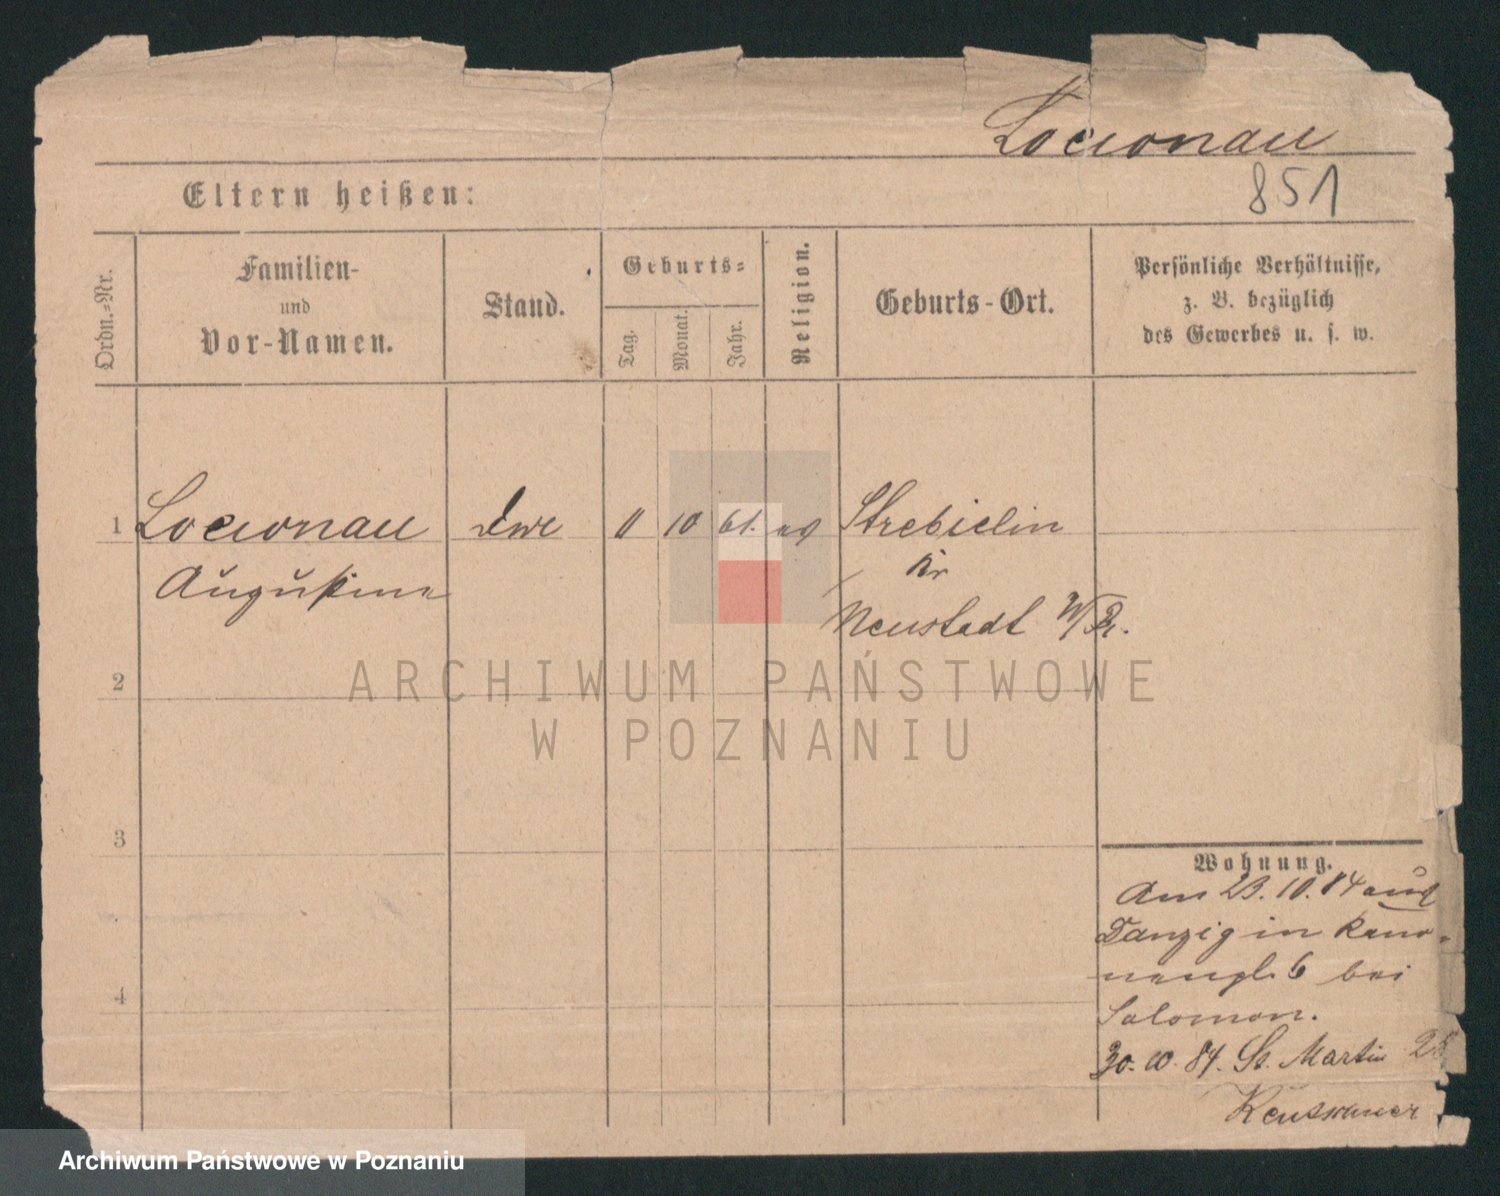 Locionau
851
Eltern heißen:
Ordn.-Nr.
Familien-
und
Vor-Namen.
Stand.
Geburts-
Tag.
Monat.
Jahr.
Religion.
Geburts-Ort.
Persönliche Verhältnisse,
z. B. bezüglich
des Gewerbes u. s. w.
1 Locionau 11 10 61. ev Strebielin
Augustine
Kr
Neustadt W/Pr.
2
3
4
Wohnung.
Am 23. 10. 84 aus
Danzig in Kano-
nenpl. 6 bei
Salomon.
30. 10. 84. St. Martin 28
ARCHIWUM PAŃSTWOWE
W POZNANIU
Archiwum Państwowe w Poznaniu